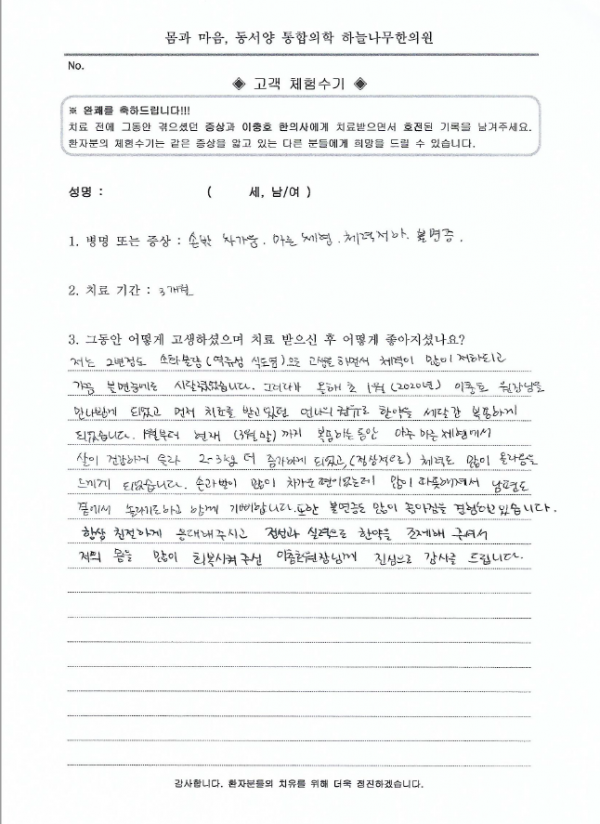 몸과 마음, 동서양 통합의학 하늘나무한의원
No.
◈ 고객 체험수기 ◈
※ 완쾌를 축하드립니다!!!
치료 전에 그동안 겪으셨던 증상과 이종호 한의사에게 치료받으면서 호전된 기록을 남겨주세요.
환자분의 체험수기는 같은 증상을 앓고 있는 다른 분들에게 희망을 드릴 수 있습니다.
성명 : ( 세, 남/여 )
1. 병명 또는 증상 : 손발 차가움. 마른 체형. 체력저하. 불면증.
2. 치료 기간 : 3개월
3. 그동안 어떻게 고생하셨으며 치료 받으신 후 어떻게 좋아지셨나요?
저는 2년정도 소화불량 (역류성 식도염)으로 고생을 하면서 체력이 많이 저하되고
가끔 불면증에도 시달렸었습니다. 그러다가 올해 초 1월 (2020년) 이종호 원장님을
만나뵙게 되었고 먼저 치료를 받고 있던 언니의 권유로 한약을 세달간 복용하게
되었습니다. 1월부터 현재 (3월말) 까지 복용하는 동안 아주 마른 체형에서
살이 건강하게 올라 2-3kg 더 증가하게 되었고, (정상적으로) 체력도 많이 올라옴을
느끼게 되었습니다. 손과 발이 많이 차가운 편이었는데 많이 따뜻해져서 남편도
옆에서 놀라기도하고 함께 기뻐합니다. 또한 불면증도 많이 좋아짐을 경험하고 있습니다.
항상 친절하게 응대해 주시고 정성과 실력으로 한약을 조제해 주셔서
저의 몸을 많이 회복시켜 주신 이종호원장님께 진심으로 감사를 드립니다.
감사합니다. 환자분들의 치유를 위해 더욱 정진하겠습니다.